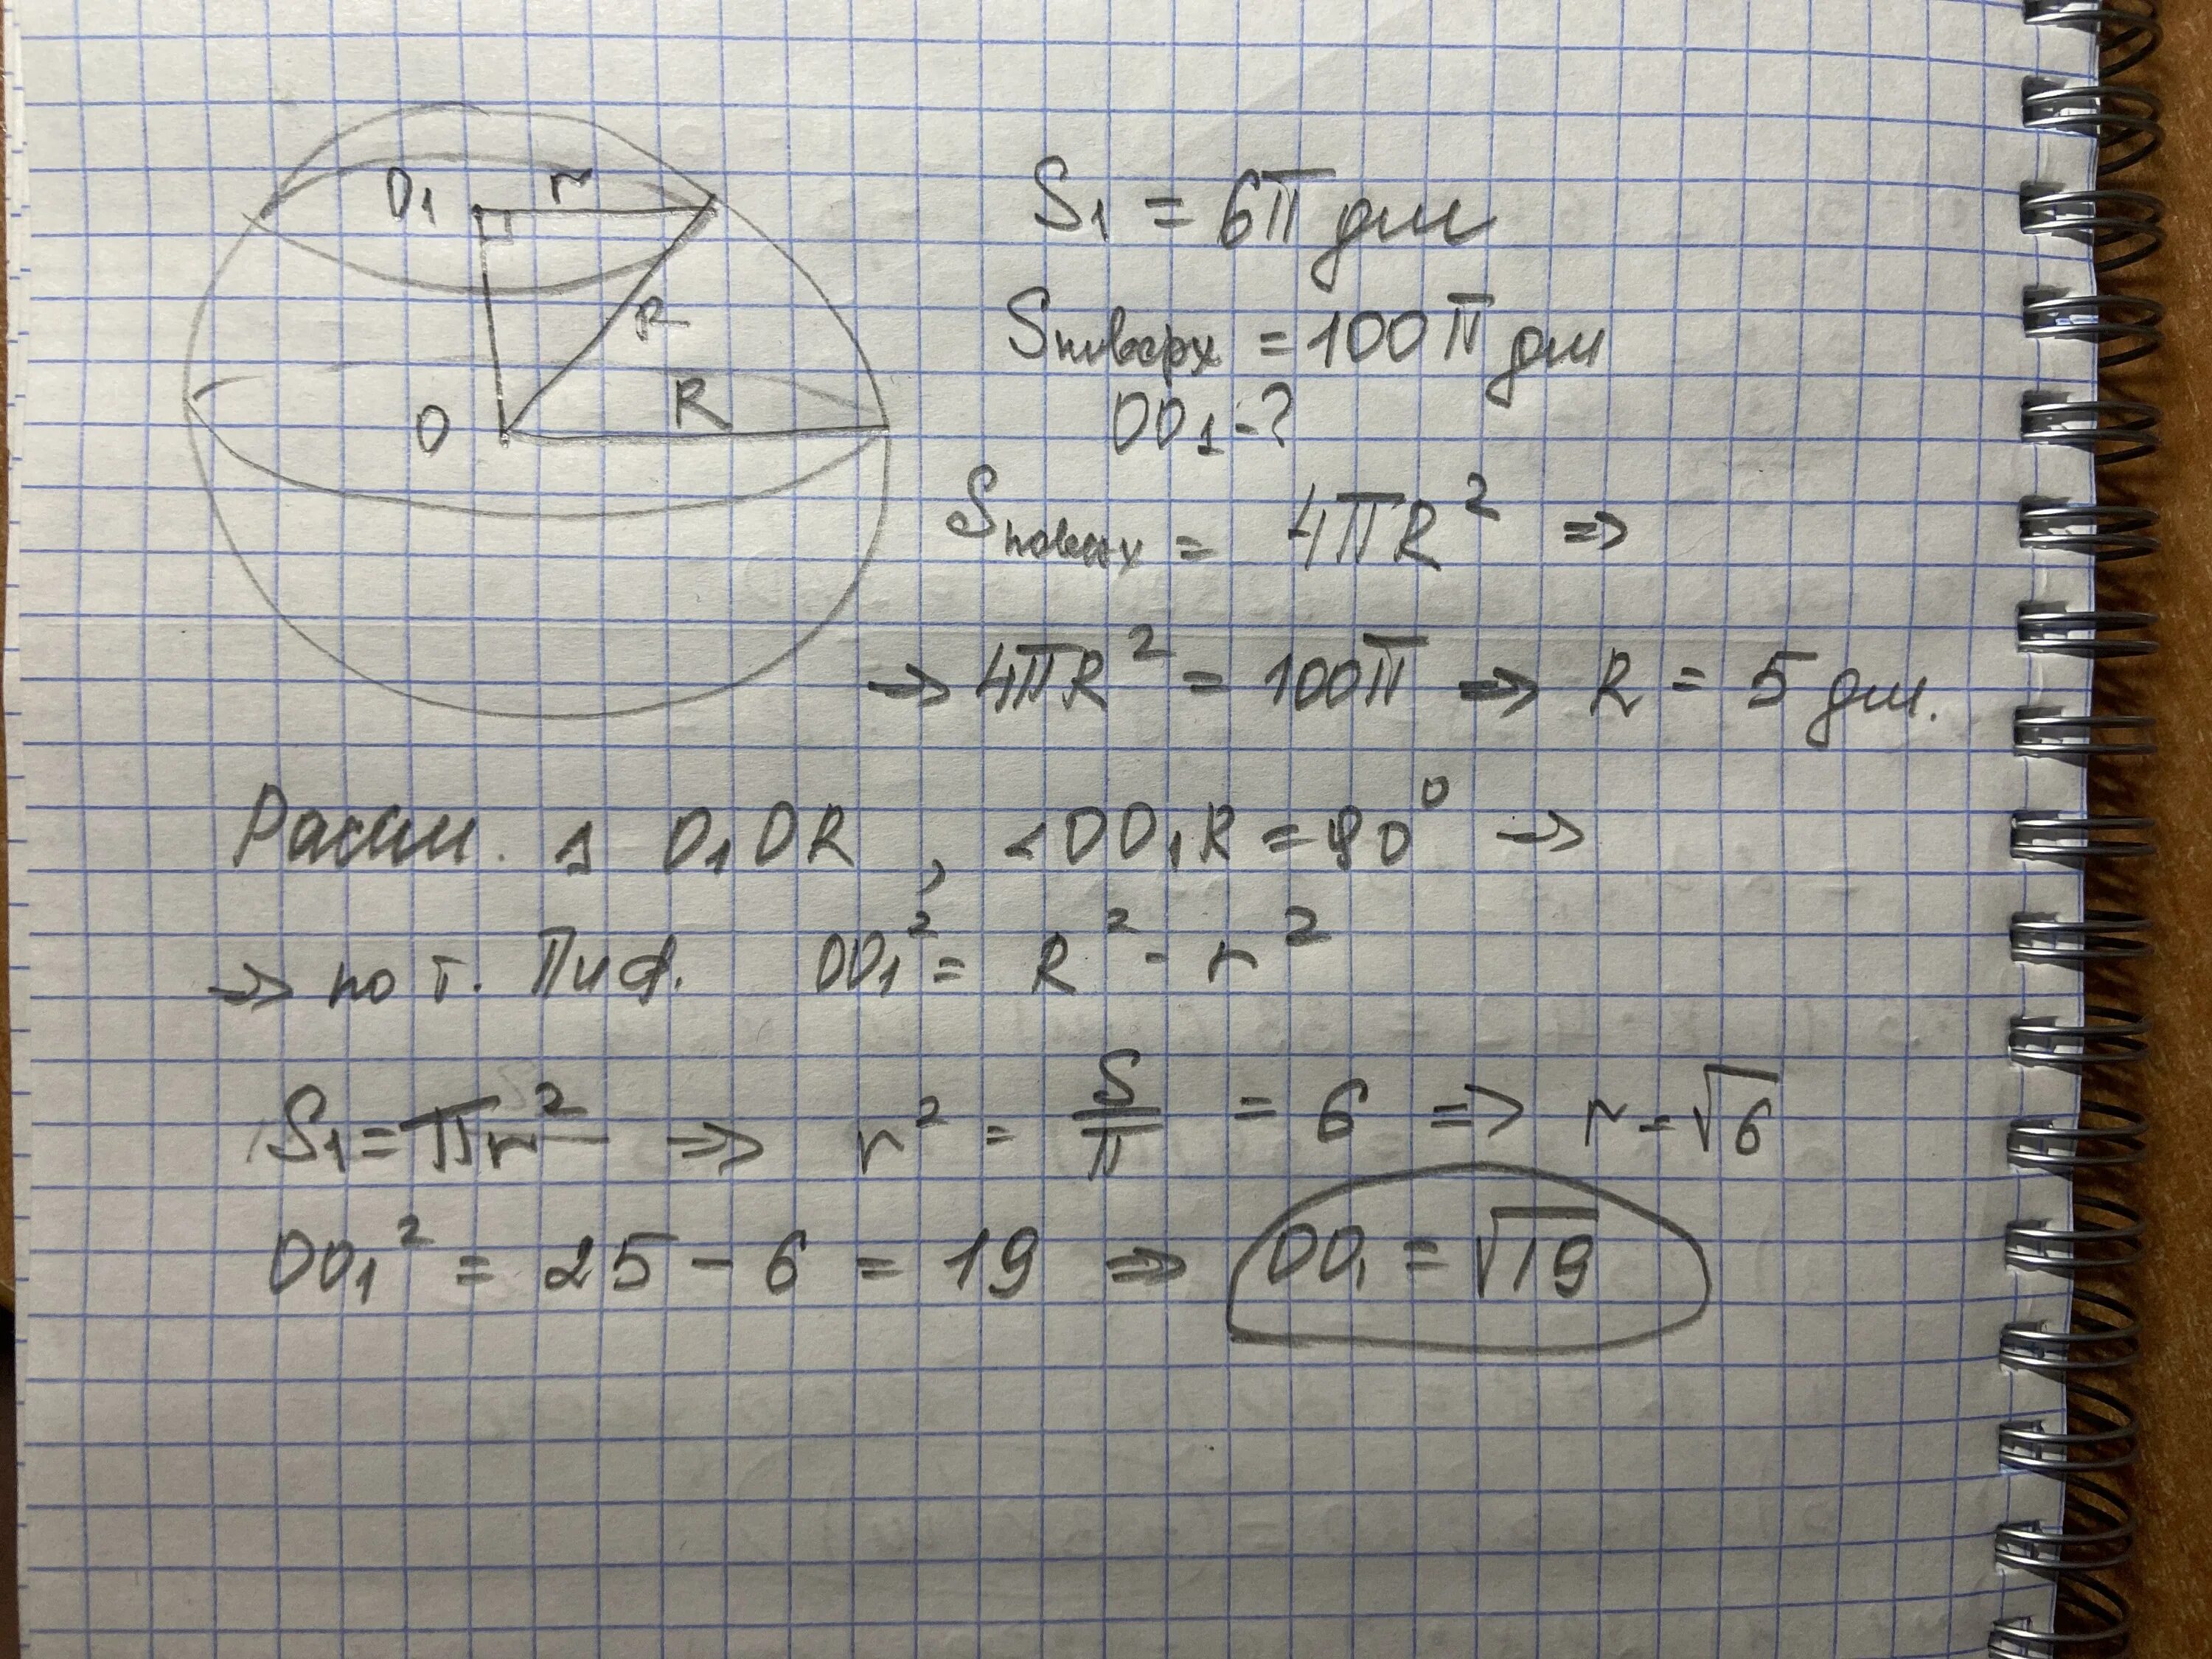 O₁ r
R
O R
S₁ = 6π дм
Sповерх = 100π дм
OO₁ - ?
Sповерх = 4πR² ⇒
⇒ 4πR² = 100π ⇒ R = 5 дм.
Рассм. △ O₁OR, ∠OO₁R = 90° ⇒
⇒ по т. Пиф. OO₁² = R² - r²
S₁ = πr² ⇒ r² = S/π = 6 ⇒ r = √6
OO₁² = 25 - 6 = 19 ⇒ OO₁ = √19